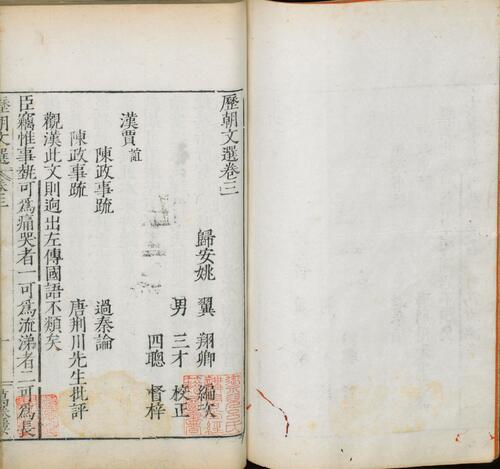 歷朝文選卷三
歸安姚 翼 翔卿 編次
男 三才 校正
四聰 督梓
漢賈誼
陳政事疏 過秦論
陳政事疏 唐荊川先生批評
觀漢此文則逈出左傳國語不類矣
臣竊惟事勢可爲痛哭者一可爲流涕者二可爲長
歷朝文選 卷三 一